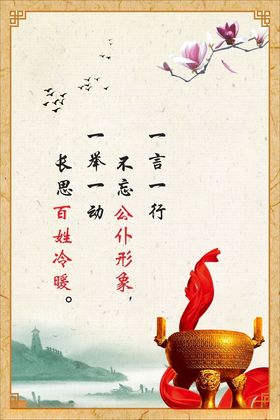 一言一行
不忘公仆形象，
一举一动
长思百姓冷暖。